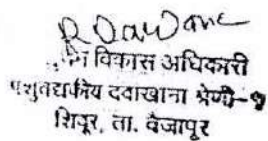 विकास अधिकारी
पशुवैद्यकीय दवाखाना श्रेणी-१
शिवूर, ता. वैजापूर